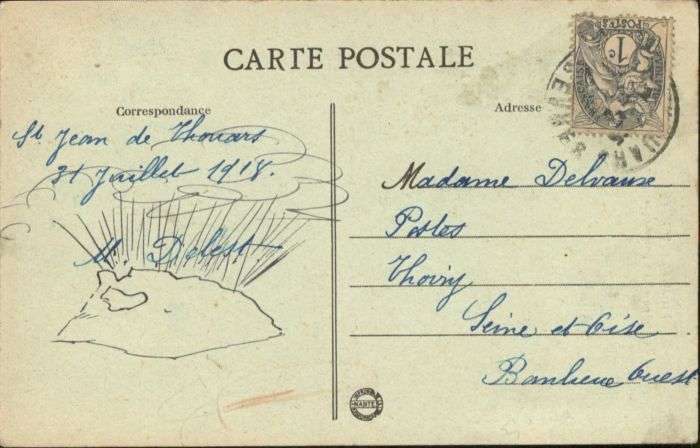 CARTE POSTALE
Correspondance
St Jean de Thouars
31 Juillet 1918.
M. Delest.
Adresse
Madame Delvaux
Postes
Thoiry
Seine et Oise
Banlieue Ouest
1c
POSTES
NANTES